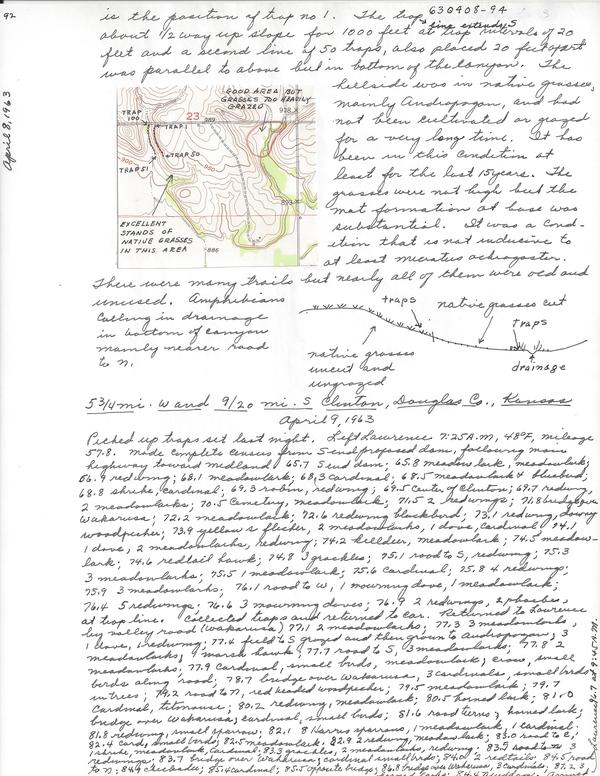 92
April 8, 1963
630408-94
is the position of trap no 1. The trap line extends S
about 1/2 way up slope for 1000 feet at trap intervals of 20
feet and a second line of 50 traps, also placed 20 feet apart
was parallel to above but in bottom of the canyon. The
hillside was in native grasses,
mainly Andropogon, and had
not been cultivated or grazed
for a very long time. It has
been in this condition at
least for the last 15 years. The
grasses were not high but the
mat formation at base was
substantial. It was a cond-
ition that is not inducive to
at least microtus ochrogaster.
GOOD AREA BUT
GRASSES TOO HEAVILY
GRAZED
TRAP
100
TRAP 1
23
989
918
TRAP 50
TRAP 51
900
880
893
EXCELLENT
STANDS OF
NATIVE GRASSES
IN THIS AREA
886
There were many trails but nearly all of them were old and
unused. Amphibians
calling in drainage
in bottom of canyon
mainly nearer road
to N.
traps
native grasses cut
traps
native grasses
uncut and
ungrazed
drainage
5 3/4 mi. W and 9/20 mi. S Clinton, Douglas Co., Kansas
April 9, 1963
Picked up traps set last night. Left Lawrence 7:25 A.M, 48°F, mileage
57.8. Made complete census from S end proposed dam, following main
highway toward midland 65.7 S end dam; 65.8 meadowlark, meadowlark;
66.9 redwing; 68.1 meadowlark; 68.3 cardinal; 68.5 meadowlark & bluebird;
68.8 shrike, cardinal; 69.3 robin, redwing; 69.5 center of Clinton; 69.7 redwing,
2 meadowlarks; 70.5 Cemetery, meadowlark; 71.5 2 redwings; 71.8 bridge over
Wakarusa; 72.2 meadowlark; 72.6 redwing blackbird; 73.1 redwing, downy
woodpecker; 73.9 yellow s. flicker, 2 meadowlarks, 1 dove, cardinal 74.1
1 dove, 2 meadowlarks, redwing; 74.2 killdeer, meadowlark; 74.5 meadow-
lark; 74.6 redtail hawk; 74.8 3 grackles; 75.1 road to S, redwing; 75.3
3 meadowlarks; 75.5 1 meadowlark; 75.6 cardinal; 75.8 4 redwings;
75.9 3 meadowlarks; 76.1 road to W, 1 mourning dove, 1 meadowlark;
76.4 5 redwings; 76.6 3 mourning doves; 76.9 2 redwings, 2 phoebes,
at trap line. Collected traps and returned to car. Returned to Lawrence
by valley road (Wakarusa) 77.1 2 meadowlarks; 77.3 3 meadowlarks,
1 dove, 1 redwing; 77.4 field to S grazed and then grown to Andropogon, 3
meadowlarks, 1 marsh hawk; 77.7 road to S, 3 meadowlarks; 77.8 2
meadowlarks 77.9 cardinal, small birds, meadowlark, crow, small
birds along road; 78.7 bridge over Wakarusa, 3 cardinals, small birds
in trees; 79.2 road to N, red headed woodpecker; 79.5 meadowlark; 79.7
cardinal, titmouse; 80.2 redwing, meadowlark; 80.5 horned lark; 81.0
bridge over Wakarusa, cardinal, small birds; 81.6 road turns, horned lark;
81.8 redwing, small sparrow; 82.1 8 Harris sparrows, 1 meadowlark, 1 cardinal;
82.4 card, small birds; 82.5 meadowlark; 82.9 2 redwing, meadowlark; 83.0 road to E,
1 shrike, meadowlark, cardinal; 83.3 grackles, 2 meadowlarks, redwing; 83.5 road to N 3
redwings; 83.7 bridge over Wakarusa; cardinal small birds; 84.0 2 redtails 84.5 road
to N; 84.9 chickadee; 85.4 cardinal; 85.5 opposite bridge; 86.8 bridge over Wakarusa, 3 cardinal;
Lawrence 96.7 at 9:45 A.M.